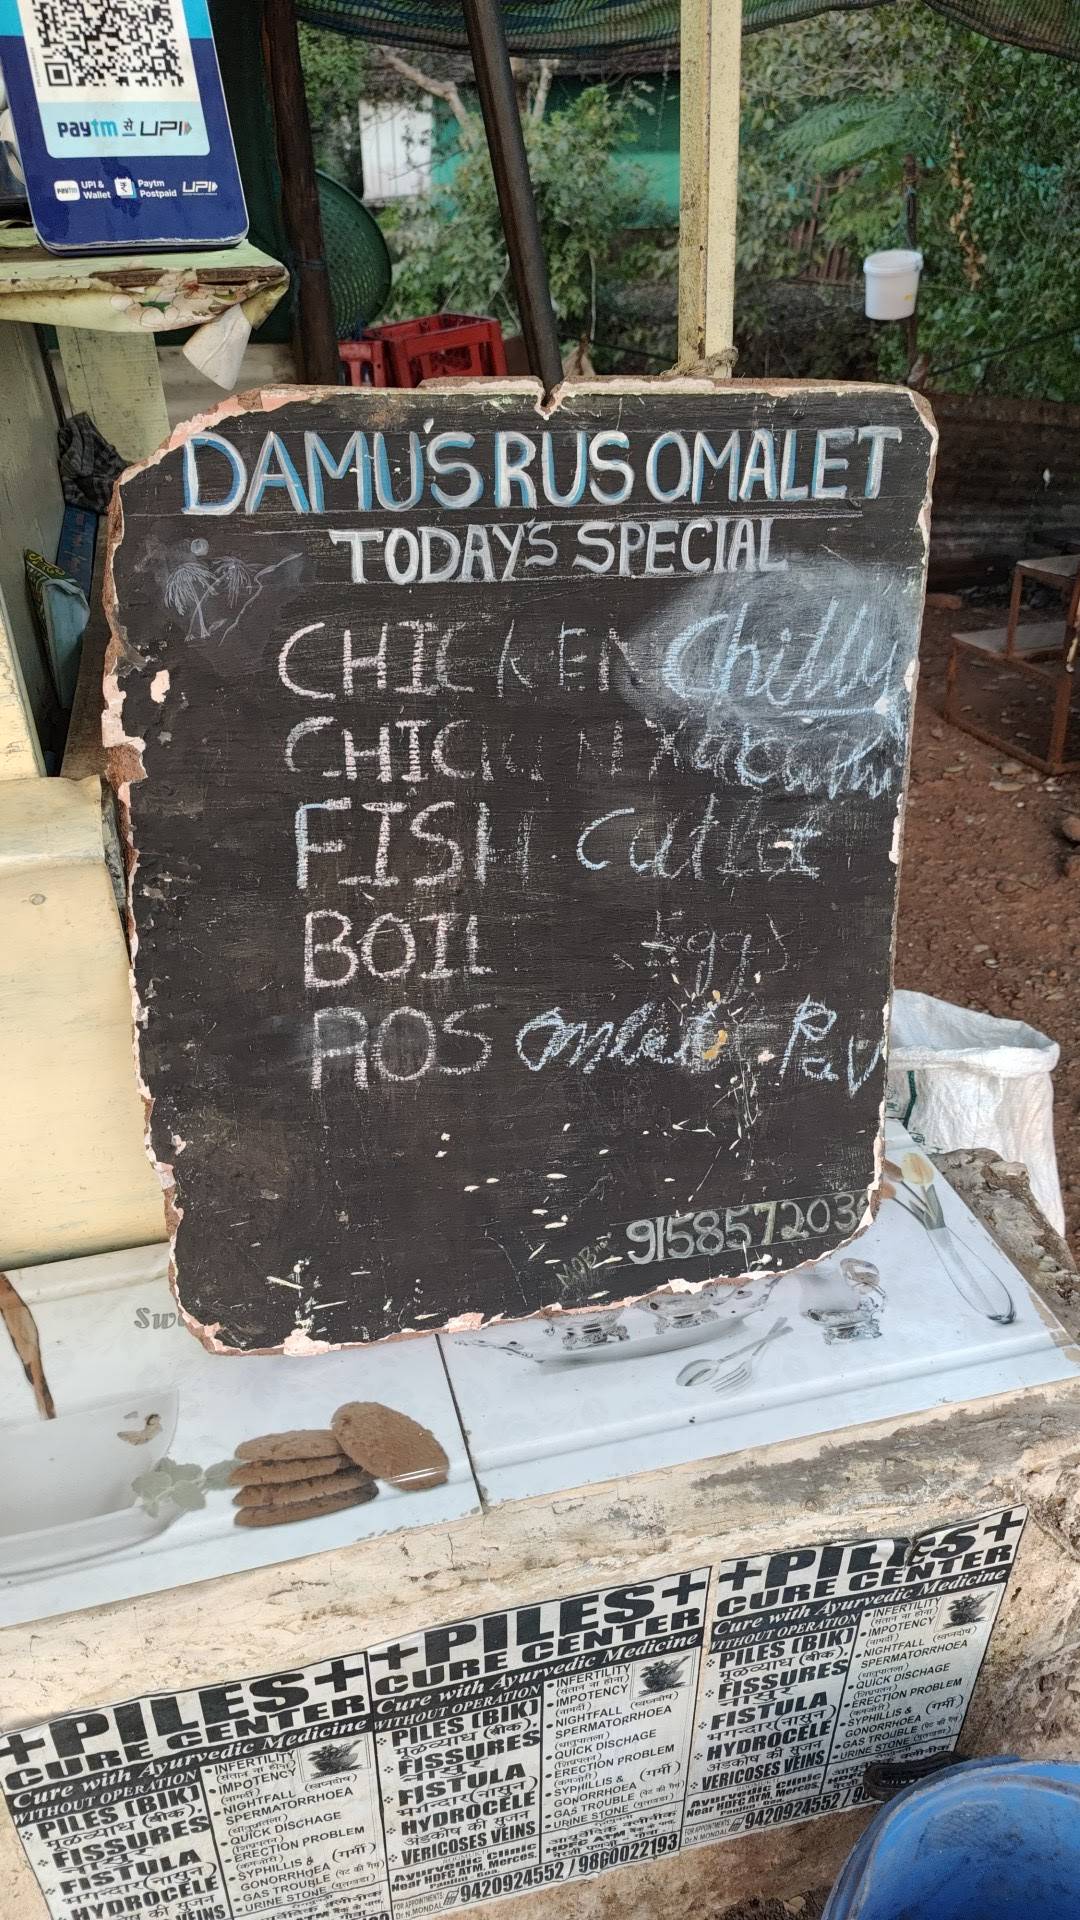 paytm से UPI
UPI & Wallet
Paytm Postpaid
UPI
DAMU'S RUS OMALET
TODAY'S SPECIAL
CHICKEN Chilly
CHICKEN Xacuthi
FISH Cutlet
BOIL Eggs
ROS Omlet Pav
MOB 915857203
+PILES+
CURE CENTER
Cure with Ayurvedic Medicine
WITHOUT OPERATION
PILES (BIK)
मूळव्याध (बीक),
FISSURES
नासुर
FISTULA
भगन्दार (नासुन)
HYDROCELE
अंडकोष की सुजन
INFERTILITY
(संतान ना होना)
IMPOTENCY
(नामर्दी)
NIGHTFALL (स्वप्नदोष)
SPERMATORRHOEA
QUICK DISCHAGE
ERECTION PROBLEM
SYPHILIS & (गर्मी)
GONORRHOEA
GAS TROUBLE
URINE STONE
+PILES+
CURE CENTER
Cure with Ayurvedic Medicine
WITHOUT OPERATION
PILES (BIK)
मूळव्याध (बीक),
FISSURES
नासुर
FISTULA
भगन्दार (नासुन)
HYDROCELE
अंडकोष की सुजन
VERICOSES VEINS
INFERTILITY
(संतान ना होना)
IMPOTENCY
(नामर्दी)
NIGHTFALL (स्वप्नदोष)
SPERMATORRHOEA
QUICK DISCHAGE
ERECTION PROBLEM
SYPHILIS & (गर्मी)
GONORRHOEA
GAS TROUBLE
URINE STONE
Ayurvedic Clinic
Near HDFC ATM, Merces,
FOR APPOINTMENTS
Dr.N.MONDAL
9420924552 / 9860022193
+PILES+
CURE CENTER
Cure with Ayurvedic Medicine
WITHOUT OPERATION
PILES (BIK)
मूळव्याध (बीक),
FISSURES
नासुर
FISTULA
भगन्दार (नासुन)
HYDROCELE
अंडकोष की सुजन
VERICOSES VEINS
INFERTILITY
(संतान ना होना)
IMPOTENCY
(नामर्दी)
NIGHTFALL (स्वप्नदोष)
SPERMATORRHOEA
QUICK DISCHAGE
ERECTION PROBLEM
SYPHILIS & (गर्मी)
GONORRHOEA
GAS TROUBLE
URINE STONE
Ayurvedic Clinic
Near HDFC ATM, Merces,
Dr.N.MONDAL
9420924552